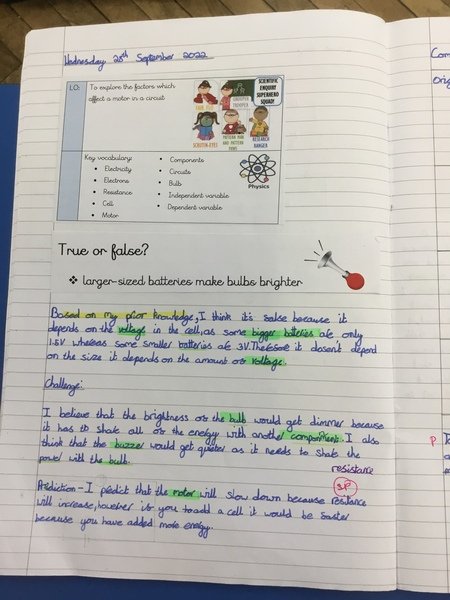 Wednesday 28th September 2022
LO:
To explore the factors which
affect a motor in a circuit
GROUPER
TROOPER
SCIENTIFIC
ENQUIRY
SUPERHERO
SQUAD!
SCRUTIN-EYES
PATTERN PAM
AND PATTERN
PAWS
RESEARCH
RANGER
Key vocabulary:
• Electricity
• Electrons
• Resistance
• Cell
• Motor
• Components
• Circuits
• Bulb
• Independent variable
• Dependent variable
Physics
True or false?
❖ larger-sized batteries make bulbs brighter
Based on my prior knowledge, I think it's false because it
depends on the voltage in the cell, as some bigger batteries are only
1.5V whereas some smaller batteries are 3V. Therefore it dosen't depend
on the size it depends on the amount of voltage.
Challenge:
I believe that the brightness of the bulb would get dimmer because
it has to share all of the energy with another component. I also
think that the buzzer would get quieter as it needs to share the
power with the bulb.
resistance
SP
Prediction - I predict that the motor will slow down because resitance
will increase, however if you to add a cell it would be faster
because you have added more energy.
Com
Orig
P